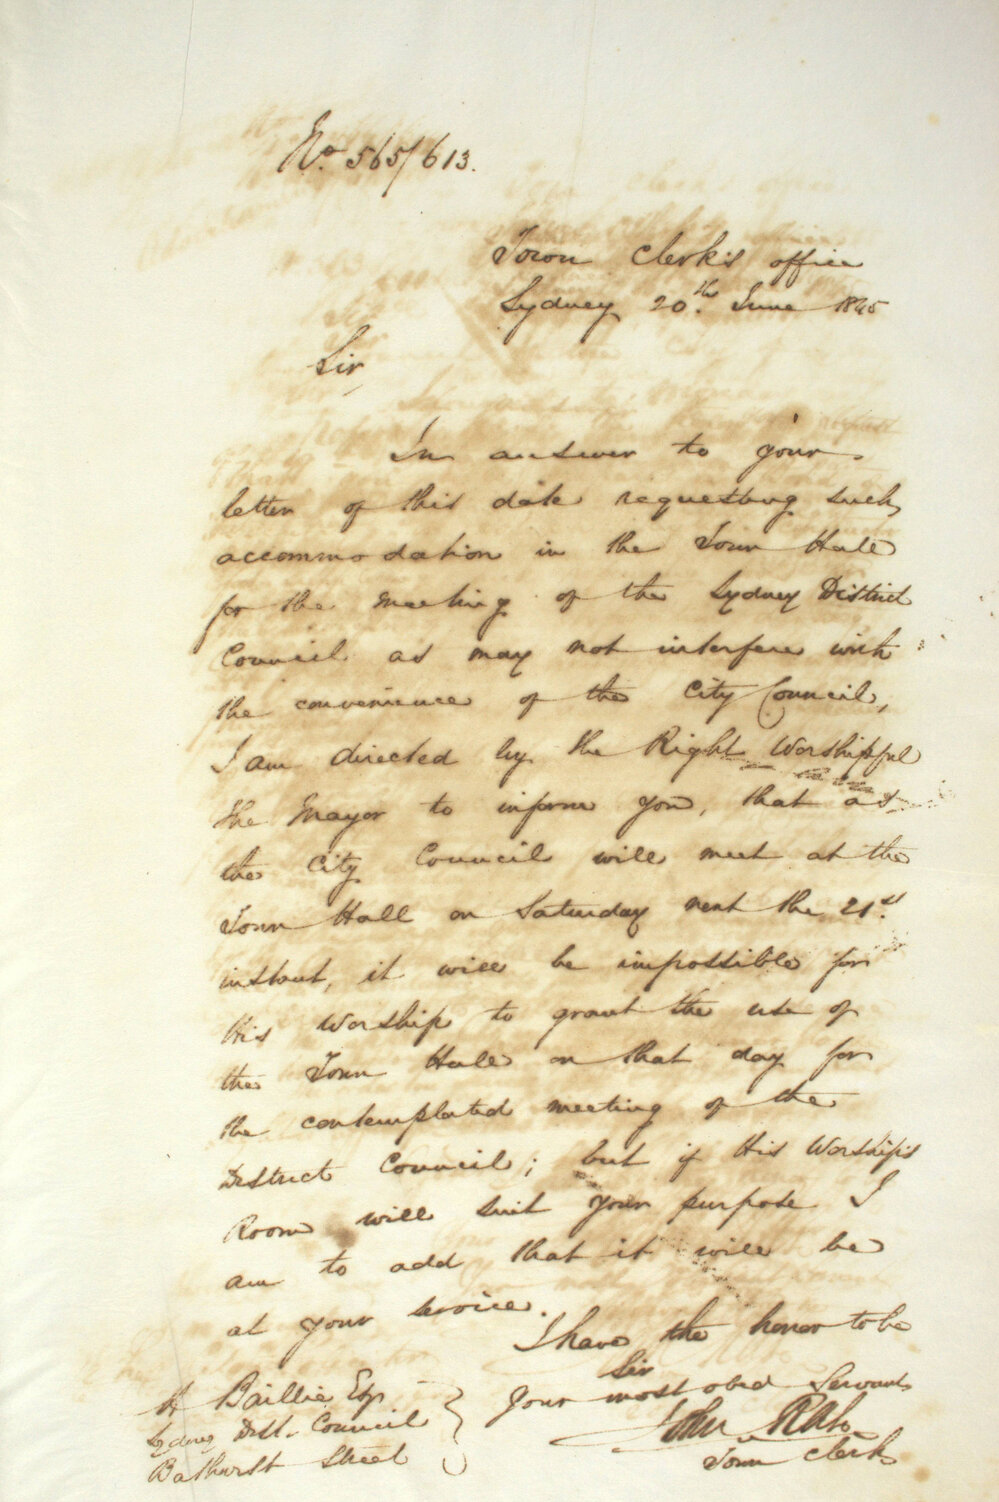 No. 565/613.
Town Clerk's office
Sydney 20th. June 1845
Sir
In answer to your
letter of this date requesting such
accommodation in the Town Hall
for the meeting of the Sydney District
Council as may not interfere with
the convenience of the City Council,
I am directed by the Right Worshipful
the Mayor to inform you, that as
the City Council will meet at the
Town Hall on Saturday next the 21st.
instant, it will be impossible for
His Worship to grant the use of
the Town Hall on that day for
the contemplated meeting of the
District Council; but if His Worship's
Room will suit your purpose I
am to add that it will be
at your service.
I have the honor to be
Sir
Your most obed Servant
John
Town Clerk
Baillie Esq
Sydney Dist. Council
Bathurst Street